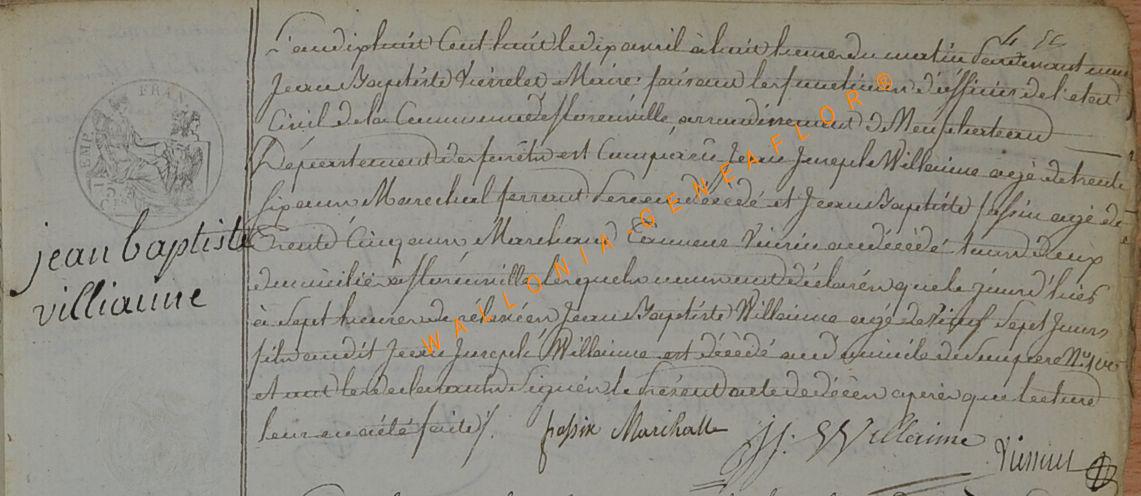 L'an dix huit Cent huit le dix avril à huit heures du matin Pardevant nous
Jean Baptiste Maire faisant les fonctions d'officier de l'etat
Civil de la Commune de florenville, arrondissement de Neufchateau
Département des forêts est Comparu Jean Joseph Willaime agé de trente
six ans Marechal ferrant Pere au décédé et Jean Baptiste fassin agé de
trente Cinq ans Marchand Comme Voisin au décédé tous deux
domiciliés a florenville Lesquels nous ont déclarés que le jour d'hier
à Sept heures de relevée Jean Baptiste Willaime agé de Sept Jours
fils audit Jean Joseph Willaime est décédé au domicile de son pere N.o 100
et ont les declarants Signés le Présent acte de décès après que lecture
leur en a été faite /.
jean baptiste
villiaume
FRAN
EMP
J J. Willaime
WALLONIA-GENEAFLOR®